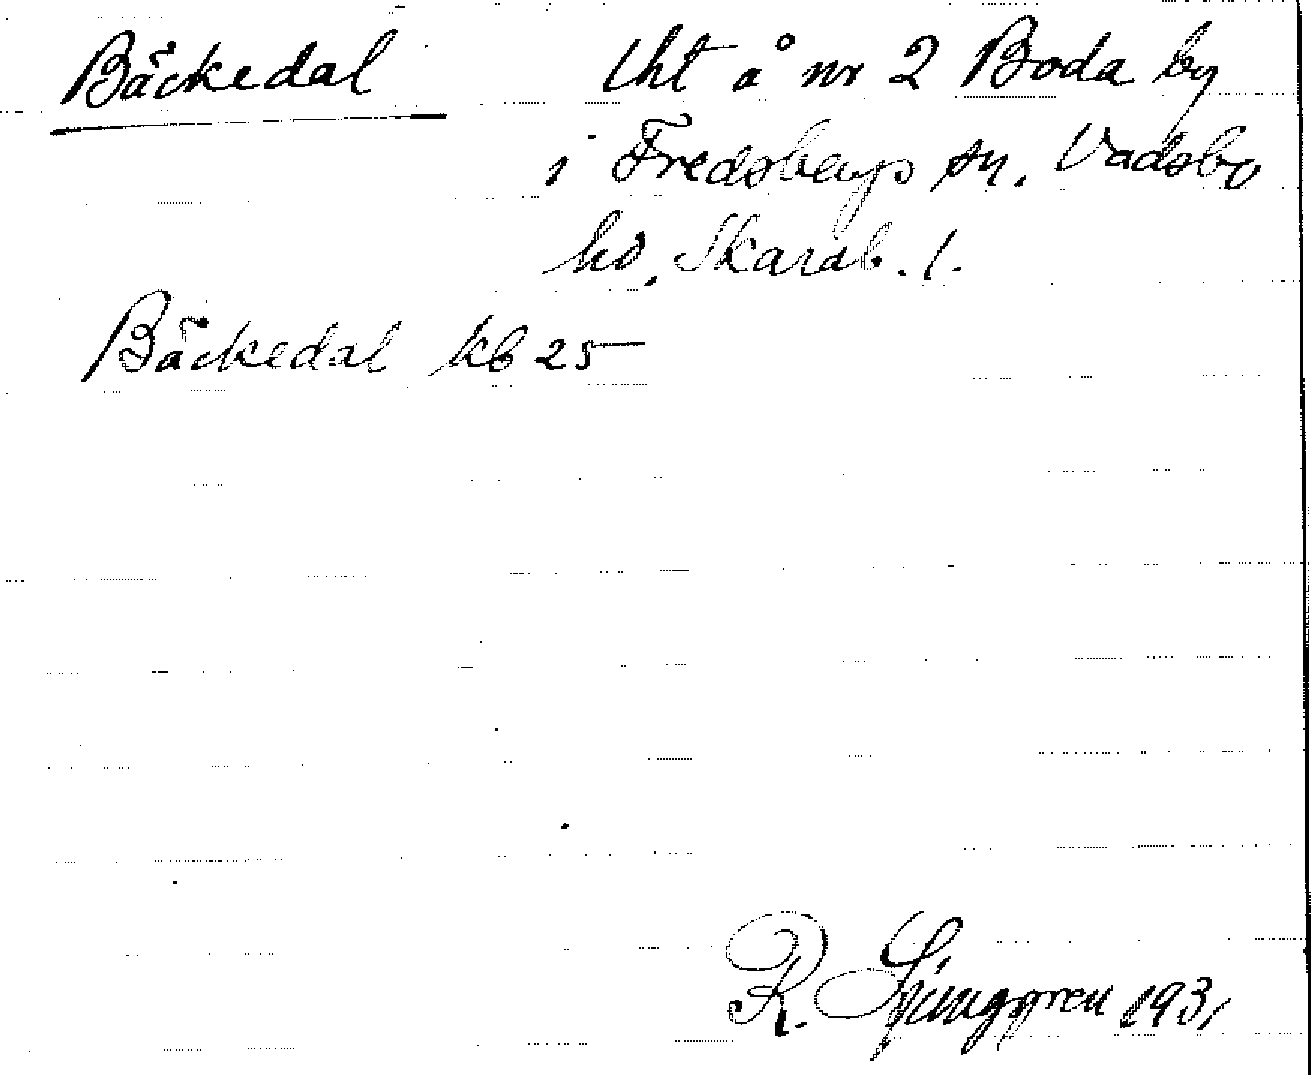 Bäckedal lht å nr 2 Boda by
i Fredsbergs sn, Vadsbo
hd, Skarab. l.
Bäckedal kb 25
R. Ljunggren 1931